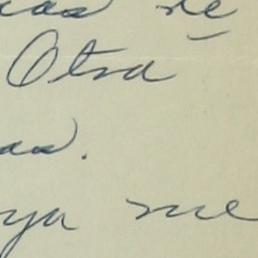 de
Otra
as.
ya me